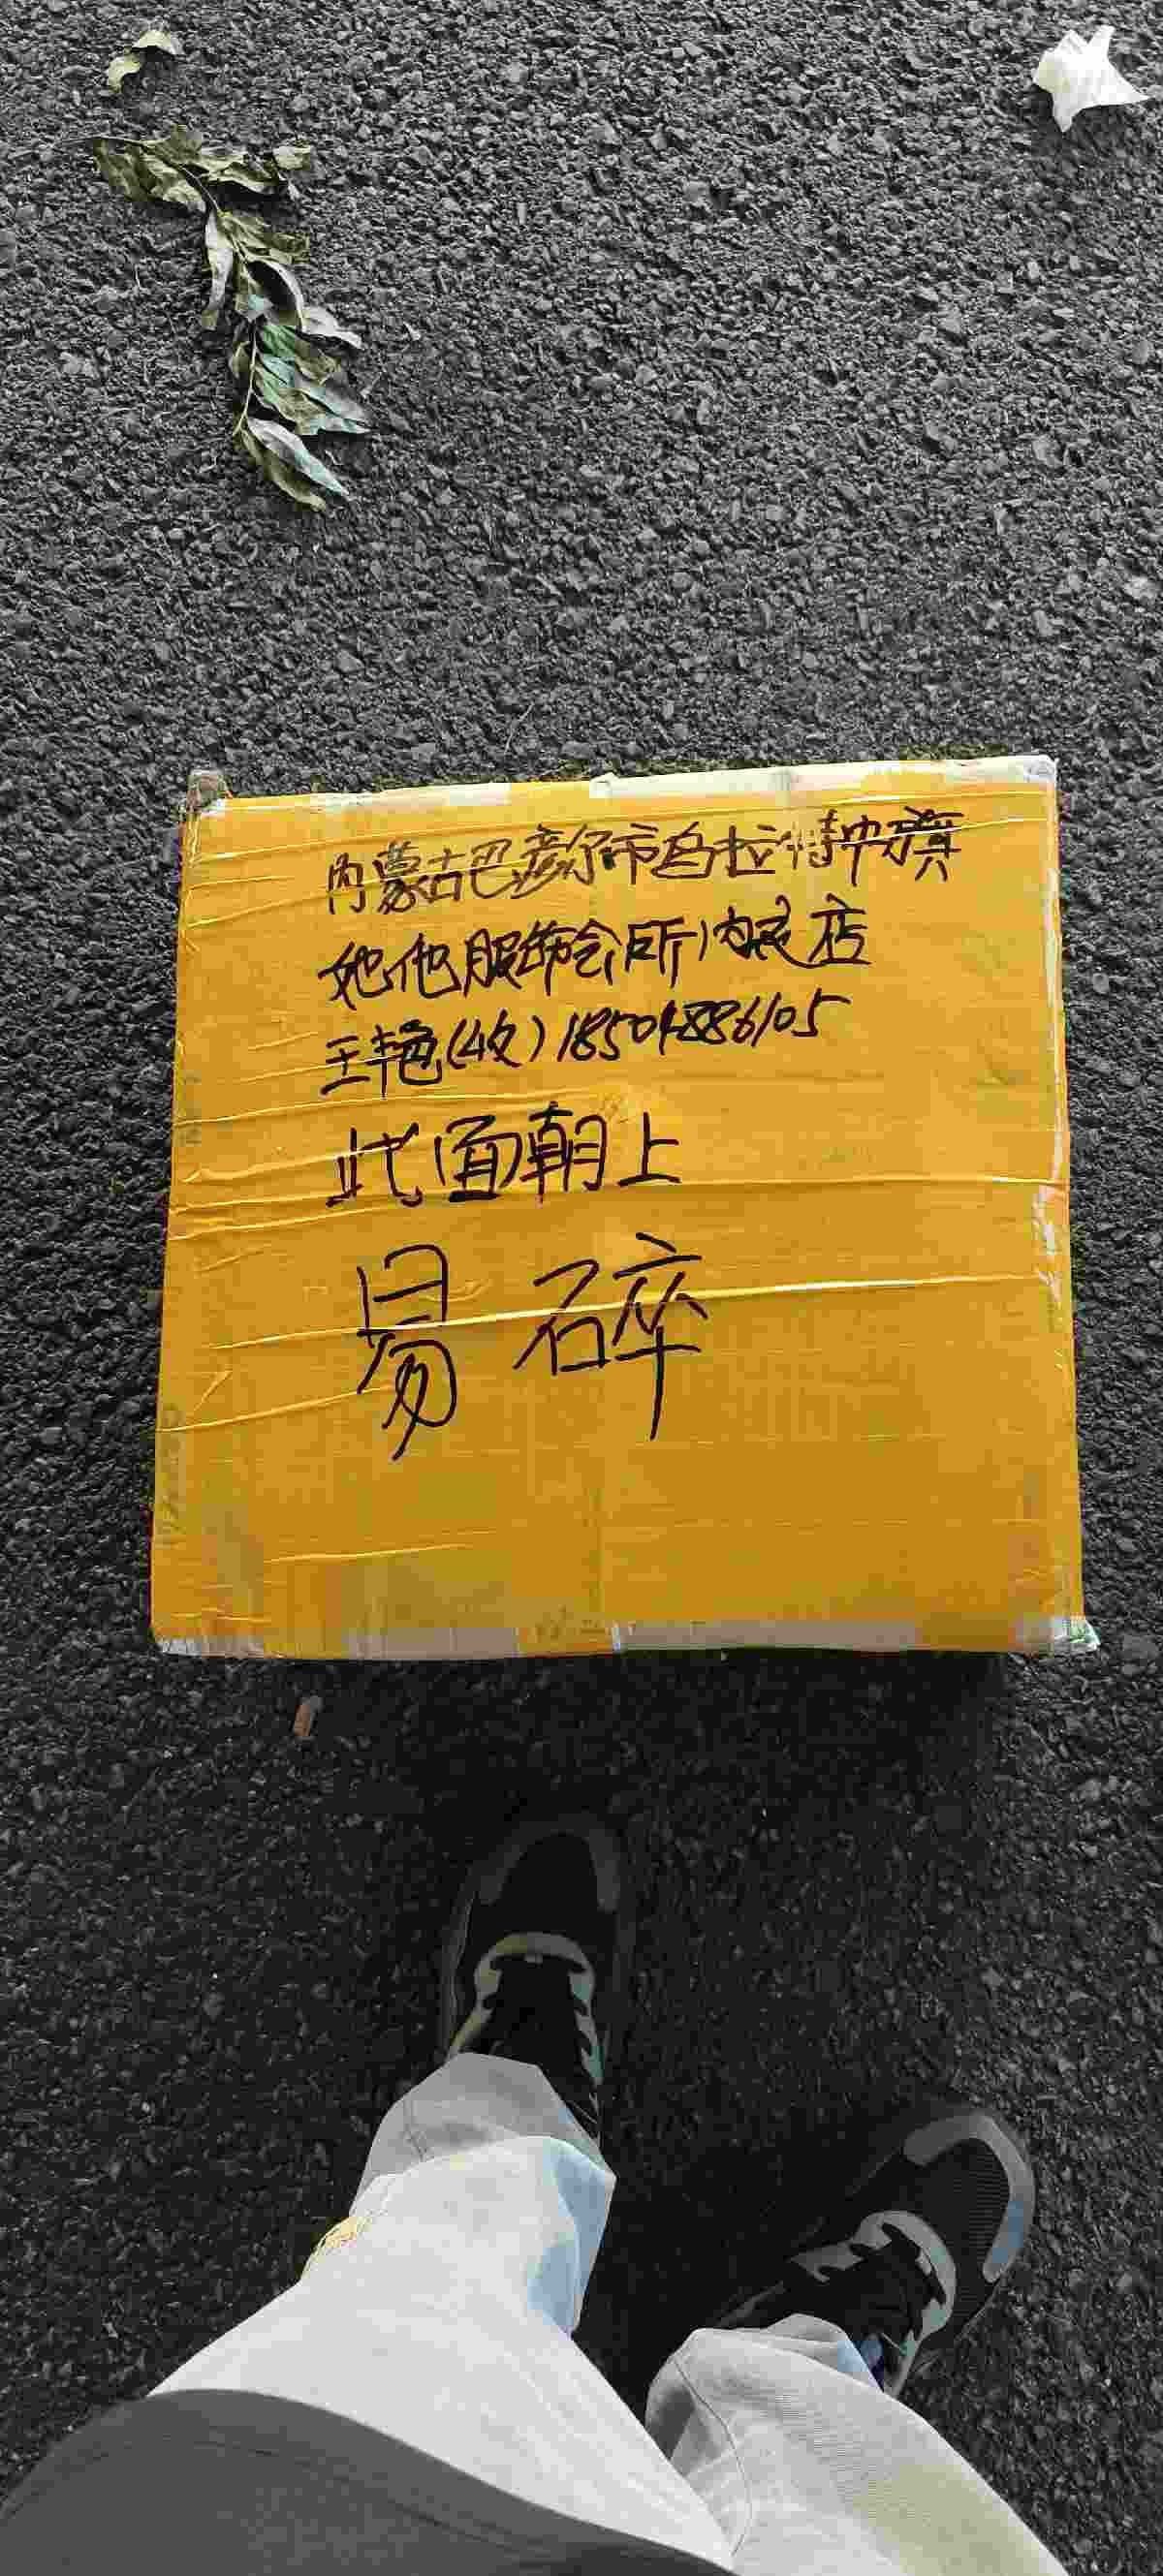 内蒙古巴彦尔市乌拉特中旗
她他服饰会所内衣店
王艳(收)18504886105
此面朝上
易碎